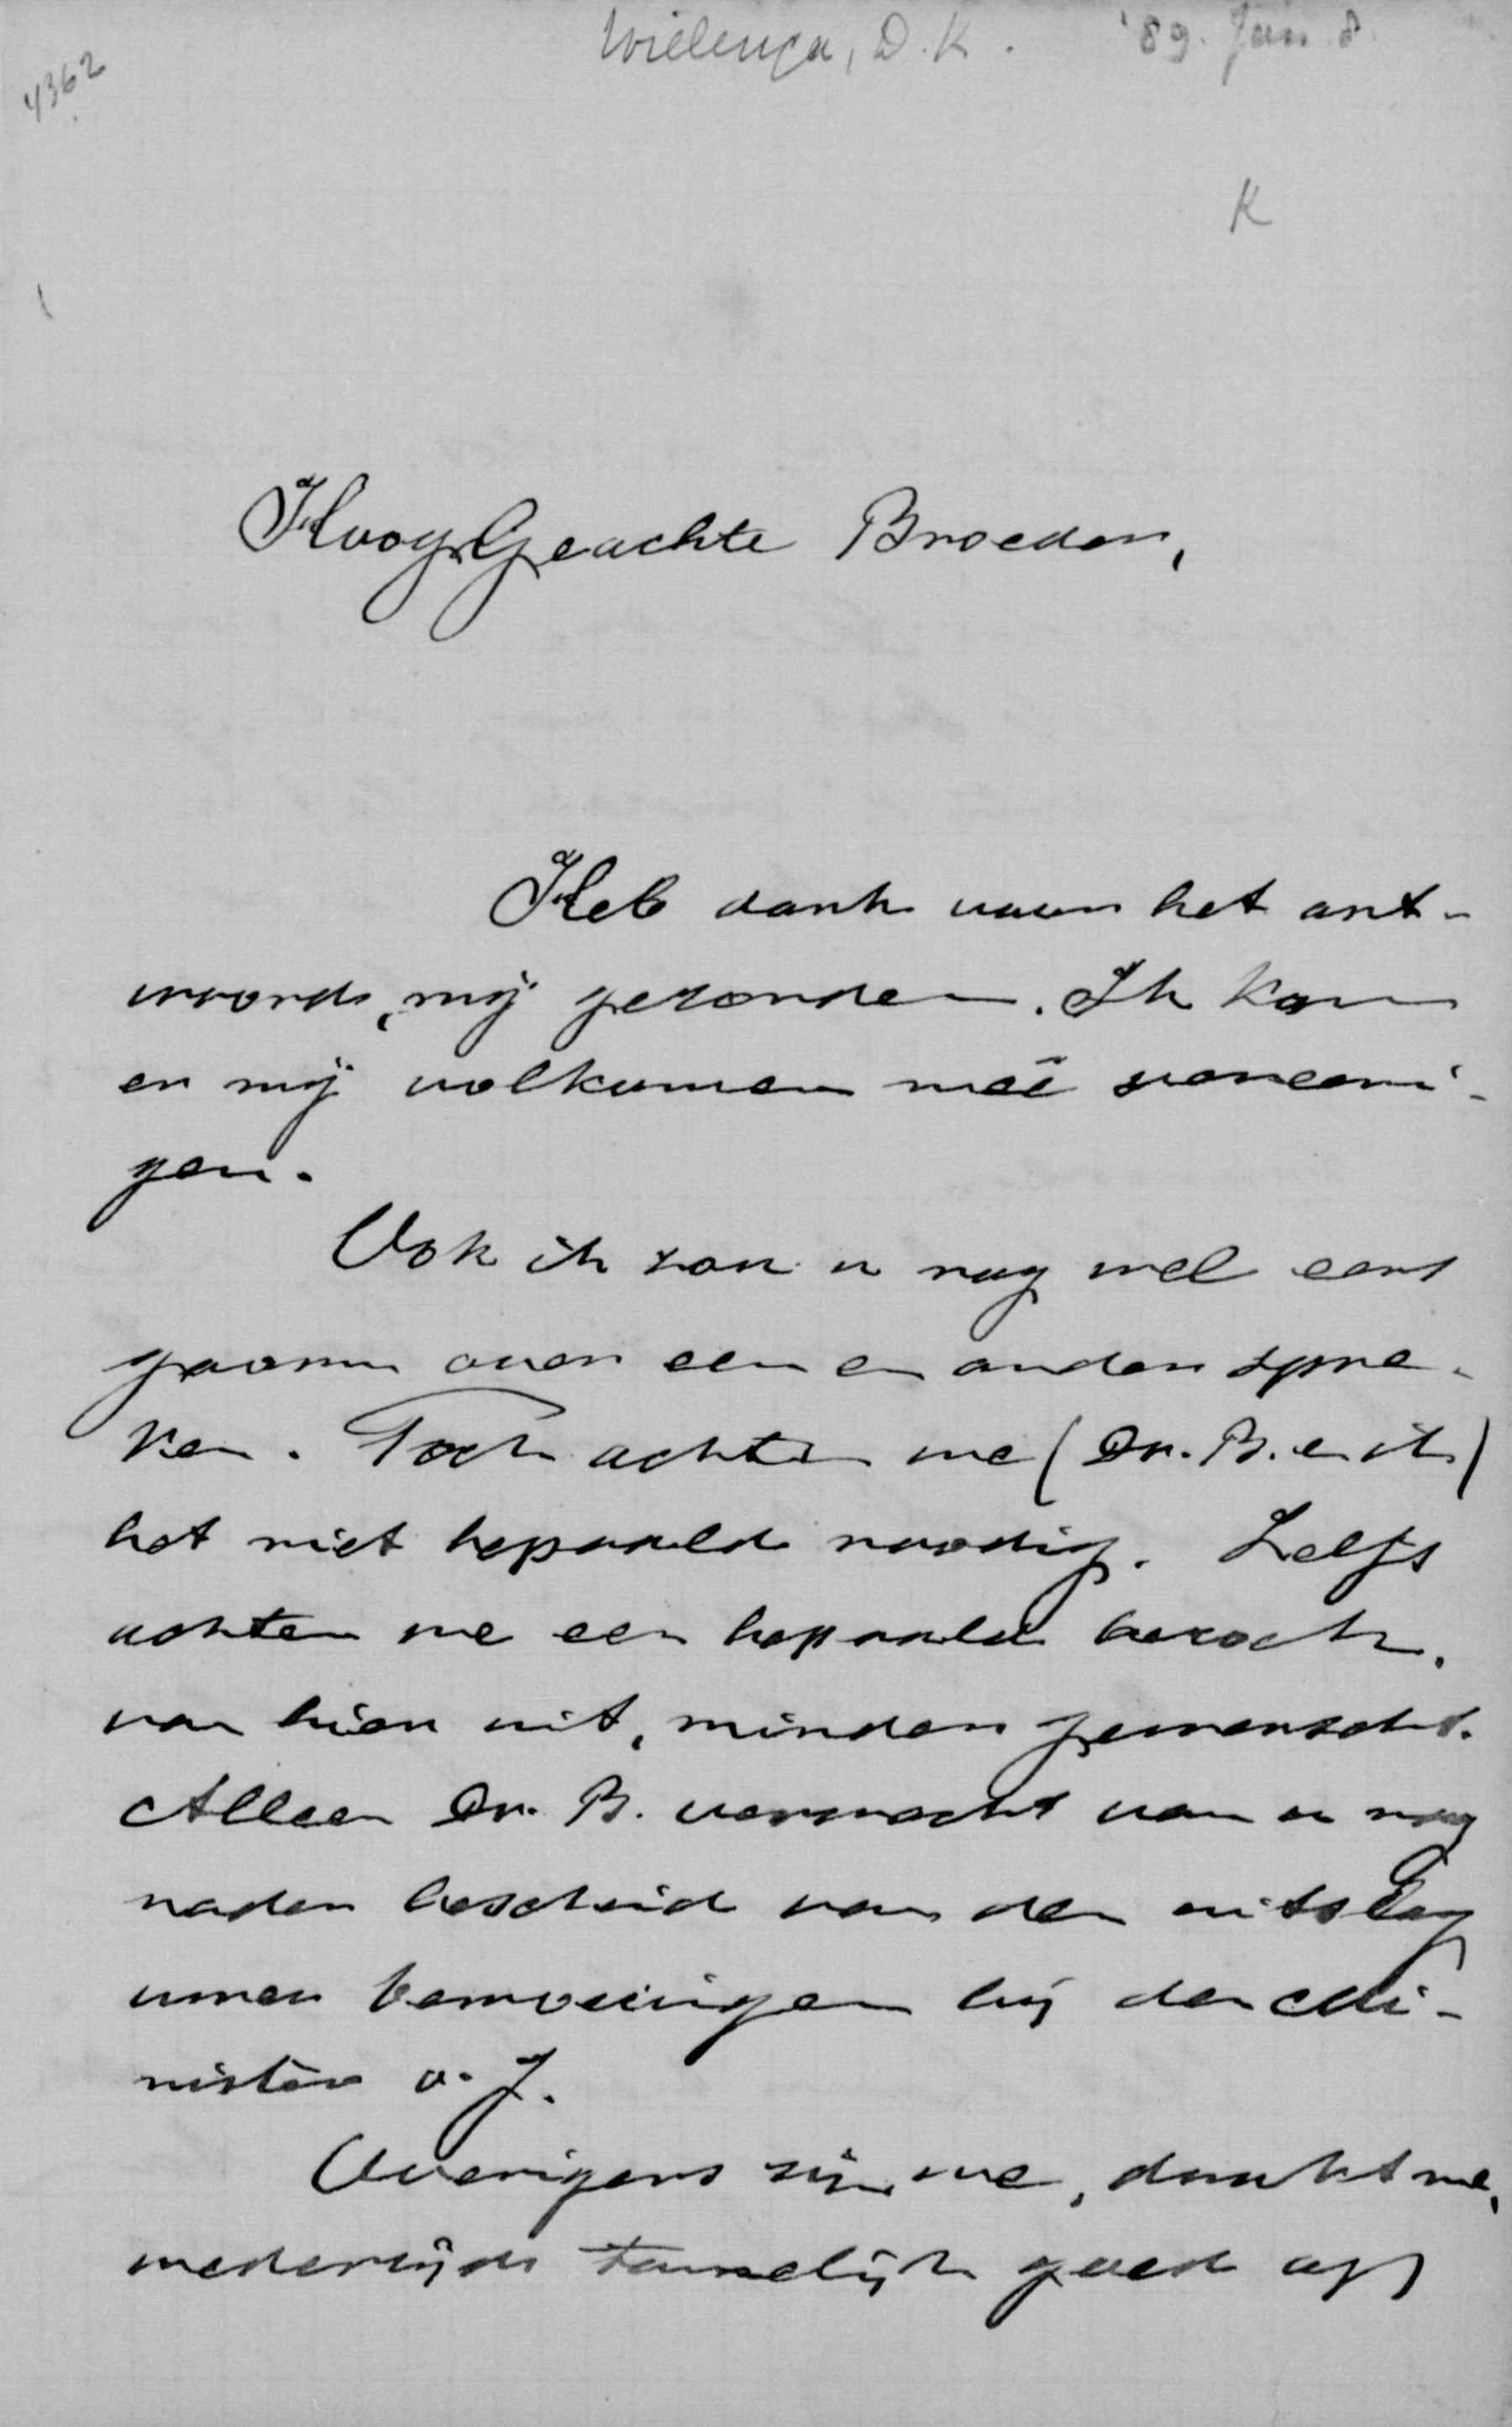 4362
Wielenga, D. K. '89. Jan 8.
K
HoogGeachte Broeder,
Heb dank voor het ant-
woord, mij gezonden. Ik kan
er mij volkomen meê vereeni-
gen.
Ook ik zou u nog wel eens
gaarne over een en ander spre-
ken. Toch achten we (Dr. B. en ik)
het niet bepaald noodig. Zelfs
achten we een bepaald bezoek,
van hier uit, minder gewenscht.
Alleen Dr. B. verwacht van u nog
nader bescheid van den uitslag
uwer bemoeiingen bij den Mi-
nister v. J.
Overigens zijn we, dunkt me,
wederzijds tamelijk goed op